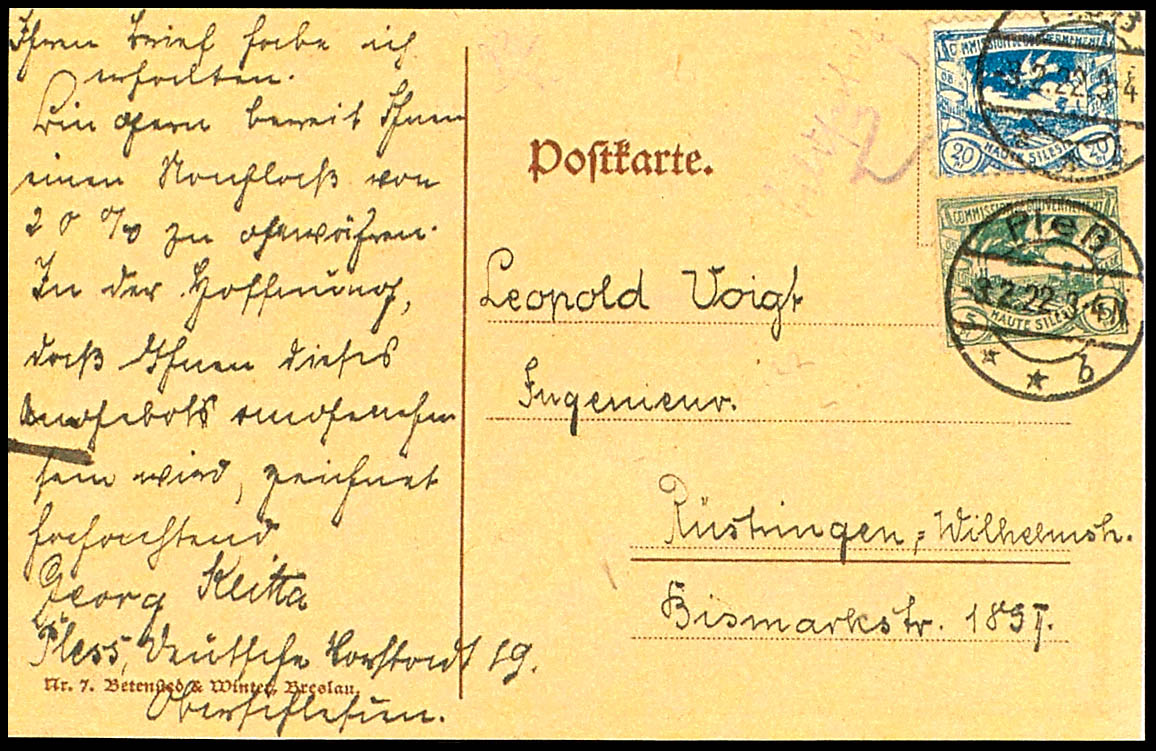 Ihren Brief habe ich
erhalten.
Bin gern bereit Ihnen
einen Nachlaß von
20 % zu gewähren.
In der Hoffnung,
daß Ihnen dieses
Angebots angenehm
sein wird, zeichnet
hochachtend
Georg Kлitta
Pless, Deutsche Vorstadt 19.
Oberschlesien.
Nr. 7. Betensted & Winter, Breslau.
Postkarte.
Leopold Voigt
Ingenieur.
Rüstringen, Wilhelmsh.
Bismarkstr. 189I.
COMMISSION DE GOUVERNEMENT
20 20
HAUTE SILESIE
-3.2.22.3-4
COMMISSION DE GOUVERNEMENT
5
HAUTE SILESIE
Pleß
-3.2.22.3-4N
b